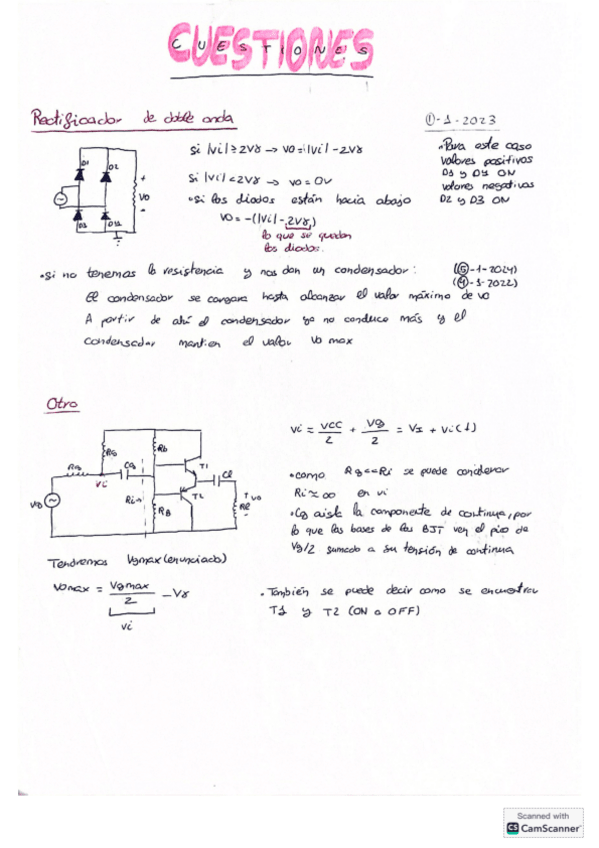 CUESTIONES
Rectificador de doble onda
①-1-2023
si |vi| ≥ 2Vγ → vo = |vi| - 2Vγ
si |vi| < 2Vγ → vo = 0V
• si los diodos están hacia abajo
vo = -(|vi| - 2Vγ)
lo que se quedan
los diodos.
• Para este caso
valores positivos
valores negativos
D2 y D3 ON
D1
D2
D3
+
Vo
-
• si no tenemos la resistencia y nos dan un condensador:
-1-2024)
El condensador se cargara hasta alcanzar el valor máximo de vo
A partir de ahí el condensador ya no conduce más y el
condensador mantien el valor vo max
Otro
vi = VCC/2 + Vg/2 = VI + vi(t)
RG
Rb
T1
CG
CL
vi
Ri→
T2
RB
+ vo
RL
-
• como Rg<<Ri se puede considerar
Ri ≈ ∞ en vi
• Cg aisla la componente de continua, por
lo que las bases de los BJT ven el pico de
Vg/2 sumado a su tensión de continua
Tendremos Vgmax (enunciado)
vomax = Vgmax/2 - Vγ
vi
• También se puede decir como se encuentran
T1 y T2 (ON o OFF)
Scanned with
CS CamScanner